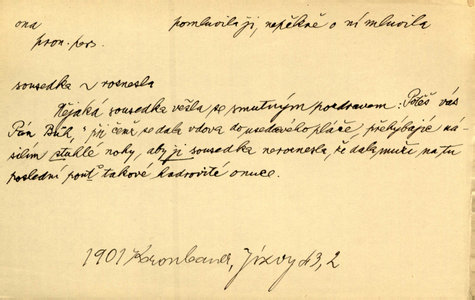 ona pomluvila ji, nepěkně o ní mluvila
pron. pers.
sousedka ~ roznesla
Nějaká sousedka vešla se smutným pozdravem: Potěš vás
Pán Bůh," při čemž se dala vdova do usedavého pláče, přehybajíc ná-
silím ztuhlé nohy, aby ji sousedka neroznesla, že dala muži na tu
poslední pouť takové hadrovité onuce.
1901 Kronbauer, Jizvy 43, 2